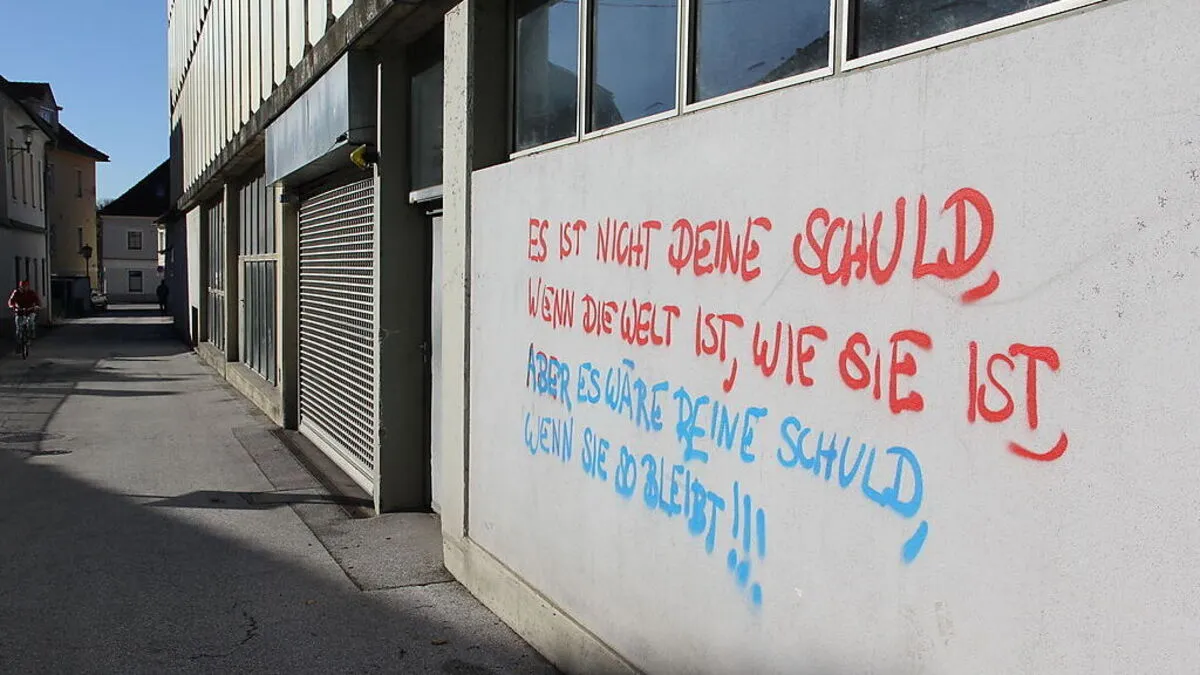 ES IST NICHT DEINE SCHULD,
WENN DIE WELT IST, WIE SIE IST,
ABER ES WÄRE DEINE SCHULD,
WENN SIE SO BLEIBT!!!